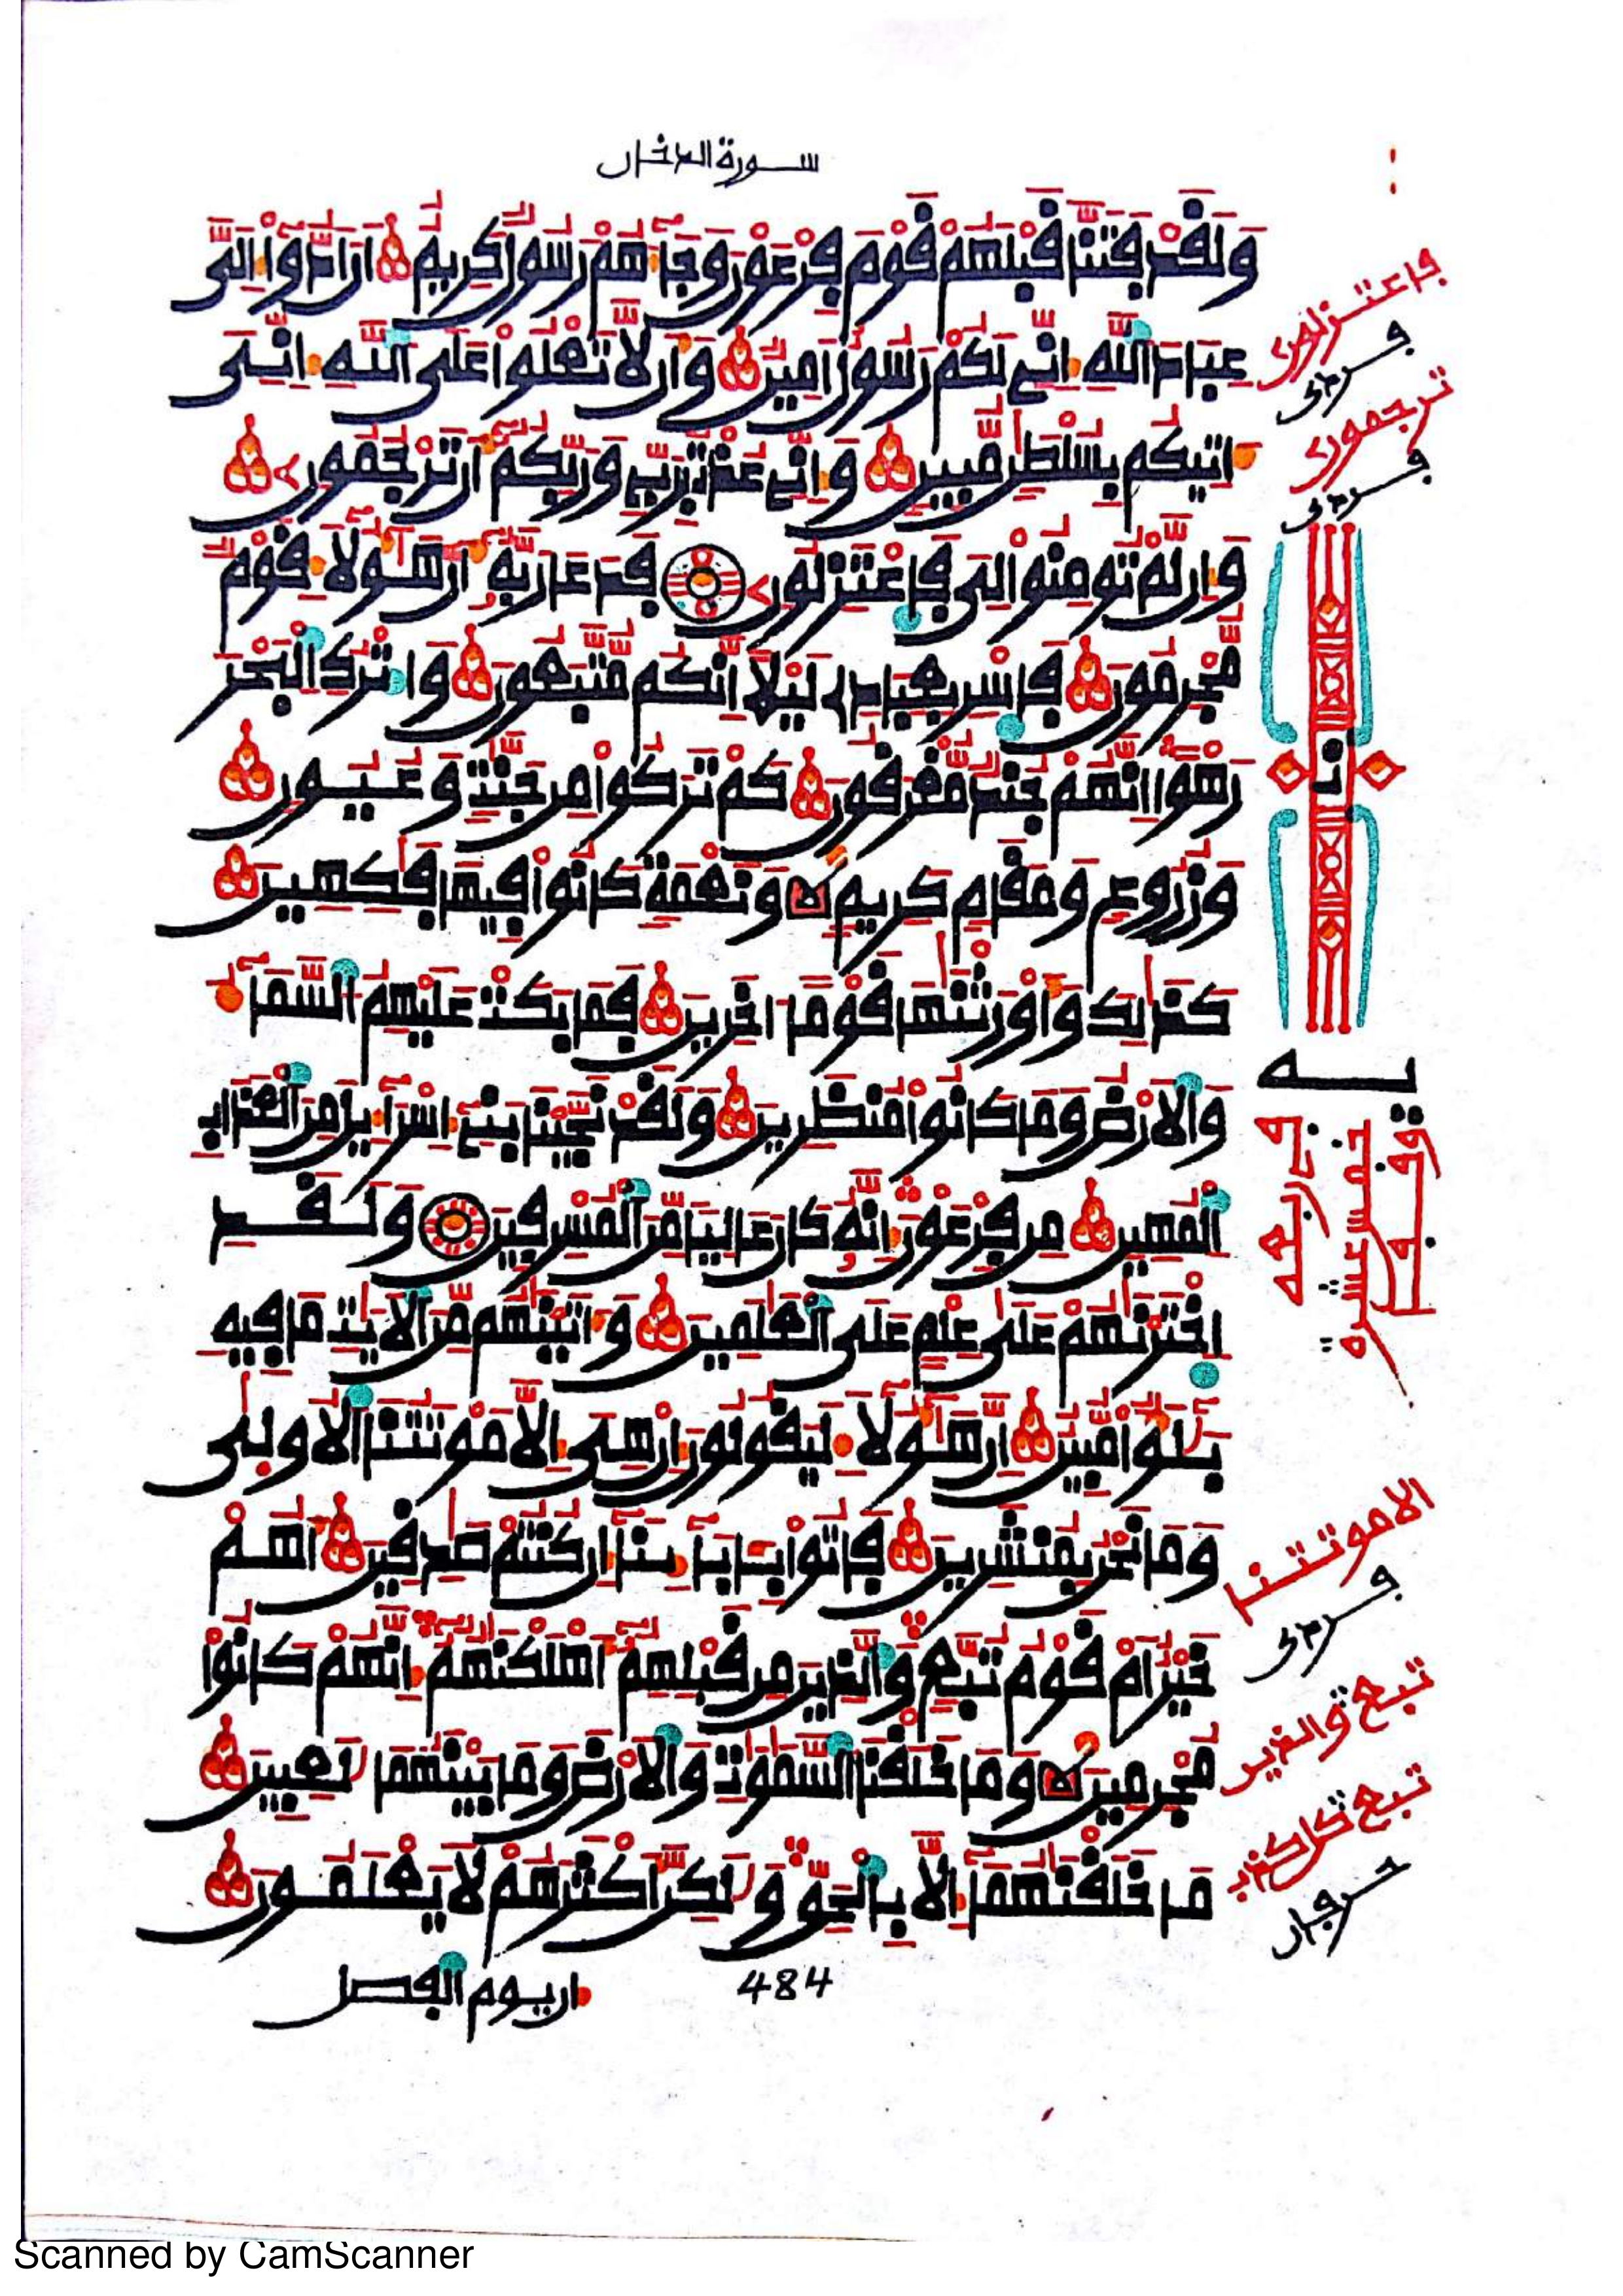 سورة الدخان
وَلَقَدْ فَتَنَّا قَبْلَهُمْ قَوْمَ فِرْعَوْنَ وَجَآءَهُمْ رَسُولٌ كَرِيمٌ اَنَ اَدُّوٓاْ إِلَىَّ
عِبَادَ اَللَّهِ إِنِّى لَكُمْ رَسُولٌ اَمِينٌ وَأَن لَّا تَعْلُواْ عَلَى اَللَّهِ إِنِّىَ
ءَاتِيكُم بِسُلْطَٰنٍ مُّبِينٍ وَإِنِّى عُذتُّ بِرَبِّى وَرَبِّكُمُۥٓ أَن تَرْجُمُونِ
وَإِن لَّمْ تُومِنُواْ لِى فَاعْتَزِلُونِ فَدَعَا رَبَّهُۥٓ أَنَّ هَٰٓؤُلَآءِ قَوْمٌ
مُّجْرِمُونَ فَاسْرِ بِعِبَادِى لَيْلًا إِنَّكُم مُّتَّبَعُونَ وَاتْرُكِ اِلْبَحْرَ
رَهْوًا إِنَّهُمْ جُندٌ مُّغْرَقُونَ كَمْ تَرَكُواْ مِن جَنَّٰتٍ وَعُيُونٍ
وَزُرُوعٍ وَمَقَامٍ كَرِيمٍ وَنَعْمَةٍ كَانُواْ فِيهَا فَٰكِهِينَ
كَذَٰلِكَ وَأَوْرَثْنَٰهَا قَوْمًا اٰخَرِينَ فَمَا بَكَتْ عَلَيْهِمُ اُلسَّمَآءُ
وَالَارْضُ وَمَا كَانُواْ مُنظَرِينَ وَلَقَدْ نَجَّيْنَا بَنِىٓ إِسْرَآءِيلَ مِنَ اَلْعَذَابِ
اِلْمُهِينِ مِن فِرْعَوْنَ إِنَّهُۥ كَانَ عَالِيًا مِّنَ اَلْمُسْرِفِينَ وَلَقَدِ
اِخْتَرْنَٰهُمْ عَلَىٰ عِلْمٍ عَلَى اَلْعَٰلَمِينَ وَءَاتَيْنَٰهُم مِّنَ اَلَايَٰتِ مَا فِيهِ
بَلَٰٓؤٌاْ مُّبِينٌ اِنَّ هَٰٓؤُلَآءِ لَيَقُولُونَ إِنْ هِىَ إِلَّا مَوْتَتُنَا اَلُاولَىٰ
وَمَا نَحْنُ بِمُنشَرِينَ فَاتُواْ بِـَٔابَآئِنَآ إِن كُنتُمْ صَٰدِقِينَ أَهُمْ
خَيْرٌ اَمْ قَوْمُ تُبَّعٍ وَالَّذِينَ مِن قَبْلِهِمُۥٓ أَهْلَكْنَٰهُمُۥٓ إِنَّهُمْ كَانُواْ
مُجْرِمِينَ وَمَا خَلَقْنَا اَلسَّمَٰوَٰتِ وَالَارْضَ وَمَا بَيْنَهُمَا لَٰعِبِينَ
مَا خَلَقْنَٰهُمَآ إِلَّا بِالْحَقِّ وَلَٰكِنَّ أَكْثَرَهُمْ لَا يَعْلَمُونَ
484
إن يوم الفصل
فاعتزلون
ترجمون
الا موتتنا
تبع والذين
تبع كل كذب
Scanned by CamScanner